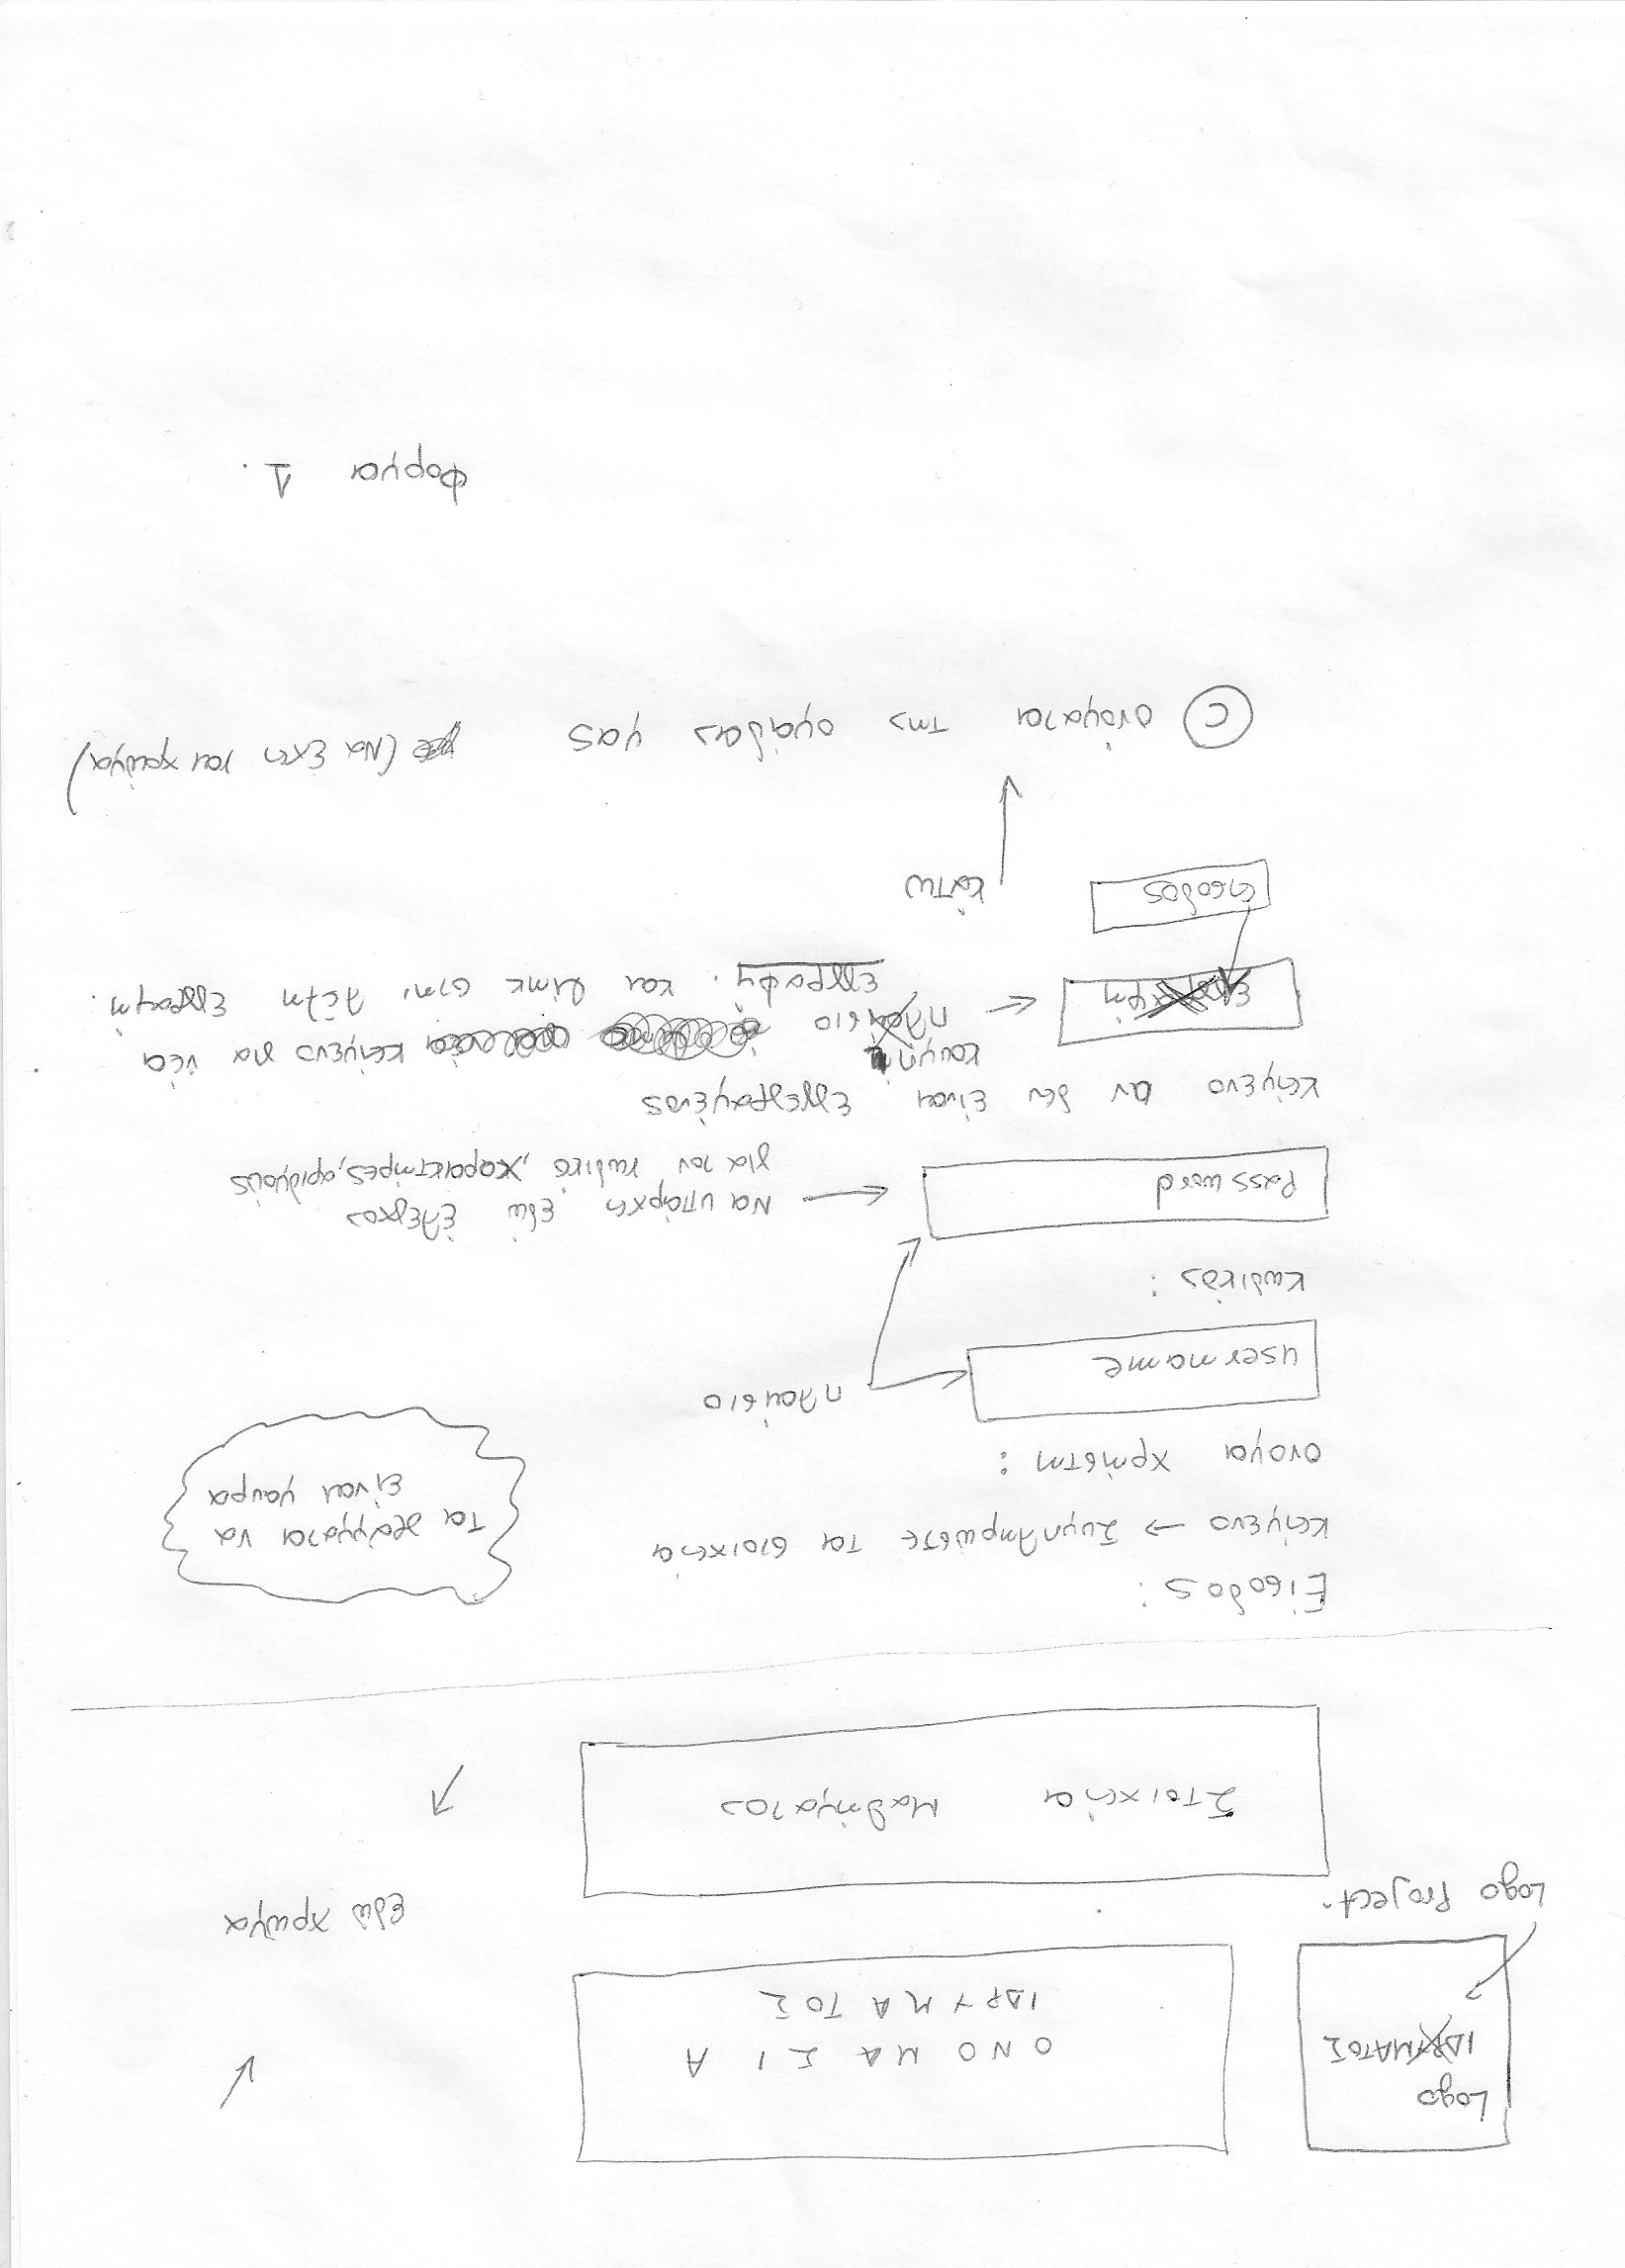 Logo
ΙΔΡΥΜΑΤΟΣ
Logo Project
ΟΝΟΜΑΣΙΑ
ΙΔΡΥΜΑΤΟΣ
εδώ χρώμα
Στοιχεία Μαθήματος
Είσοδος:
κείμενο → Συμπληρώστε τα στοιχεία
Τα γράμματα να
είναι μαυρα
ονομα χρήστη:
πλαίσιο
username
Κωδικός:
Password
Να υπάρχει εδώ έλεγχος
για τον κωδικό, χαρακτήρες, αριθμούς
κείμενο αν δεν είναι εγγεγραμένος
κουμπί
πλαίσιο κείμενο για νέα
εγγραφή
εγγραφή. και link στη λέξη εγγραφή.
είσοδος
κάτω
© ονόματα της ομάδας μας (Να έχει και χρώμα)
Φορμα 1.